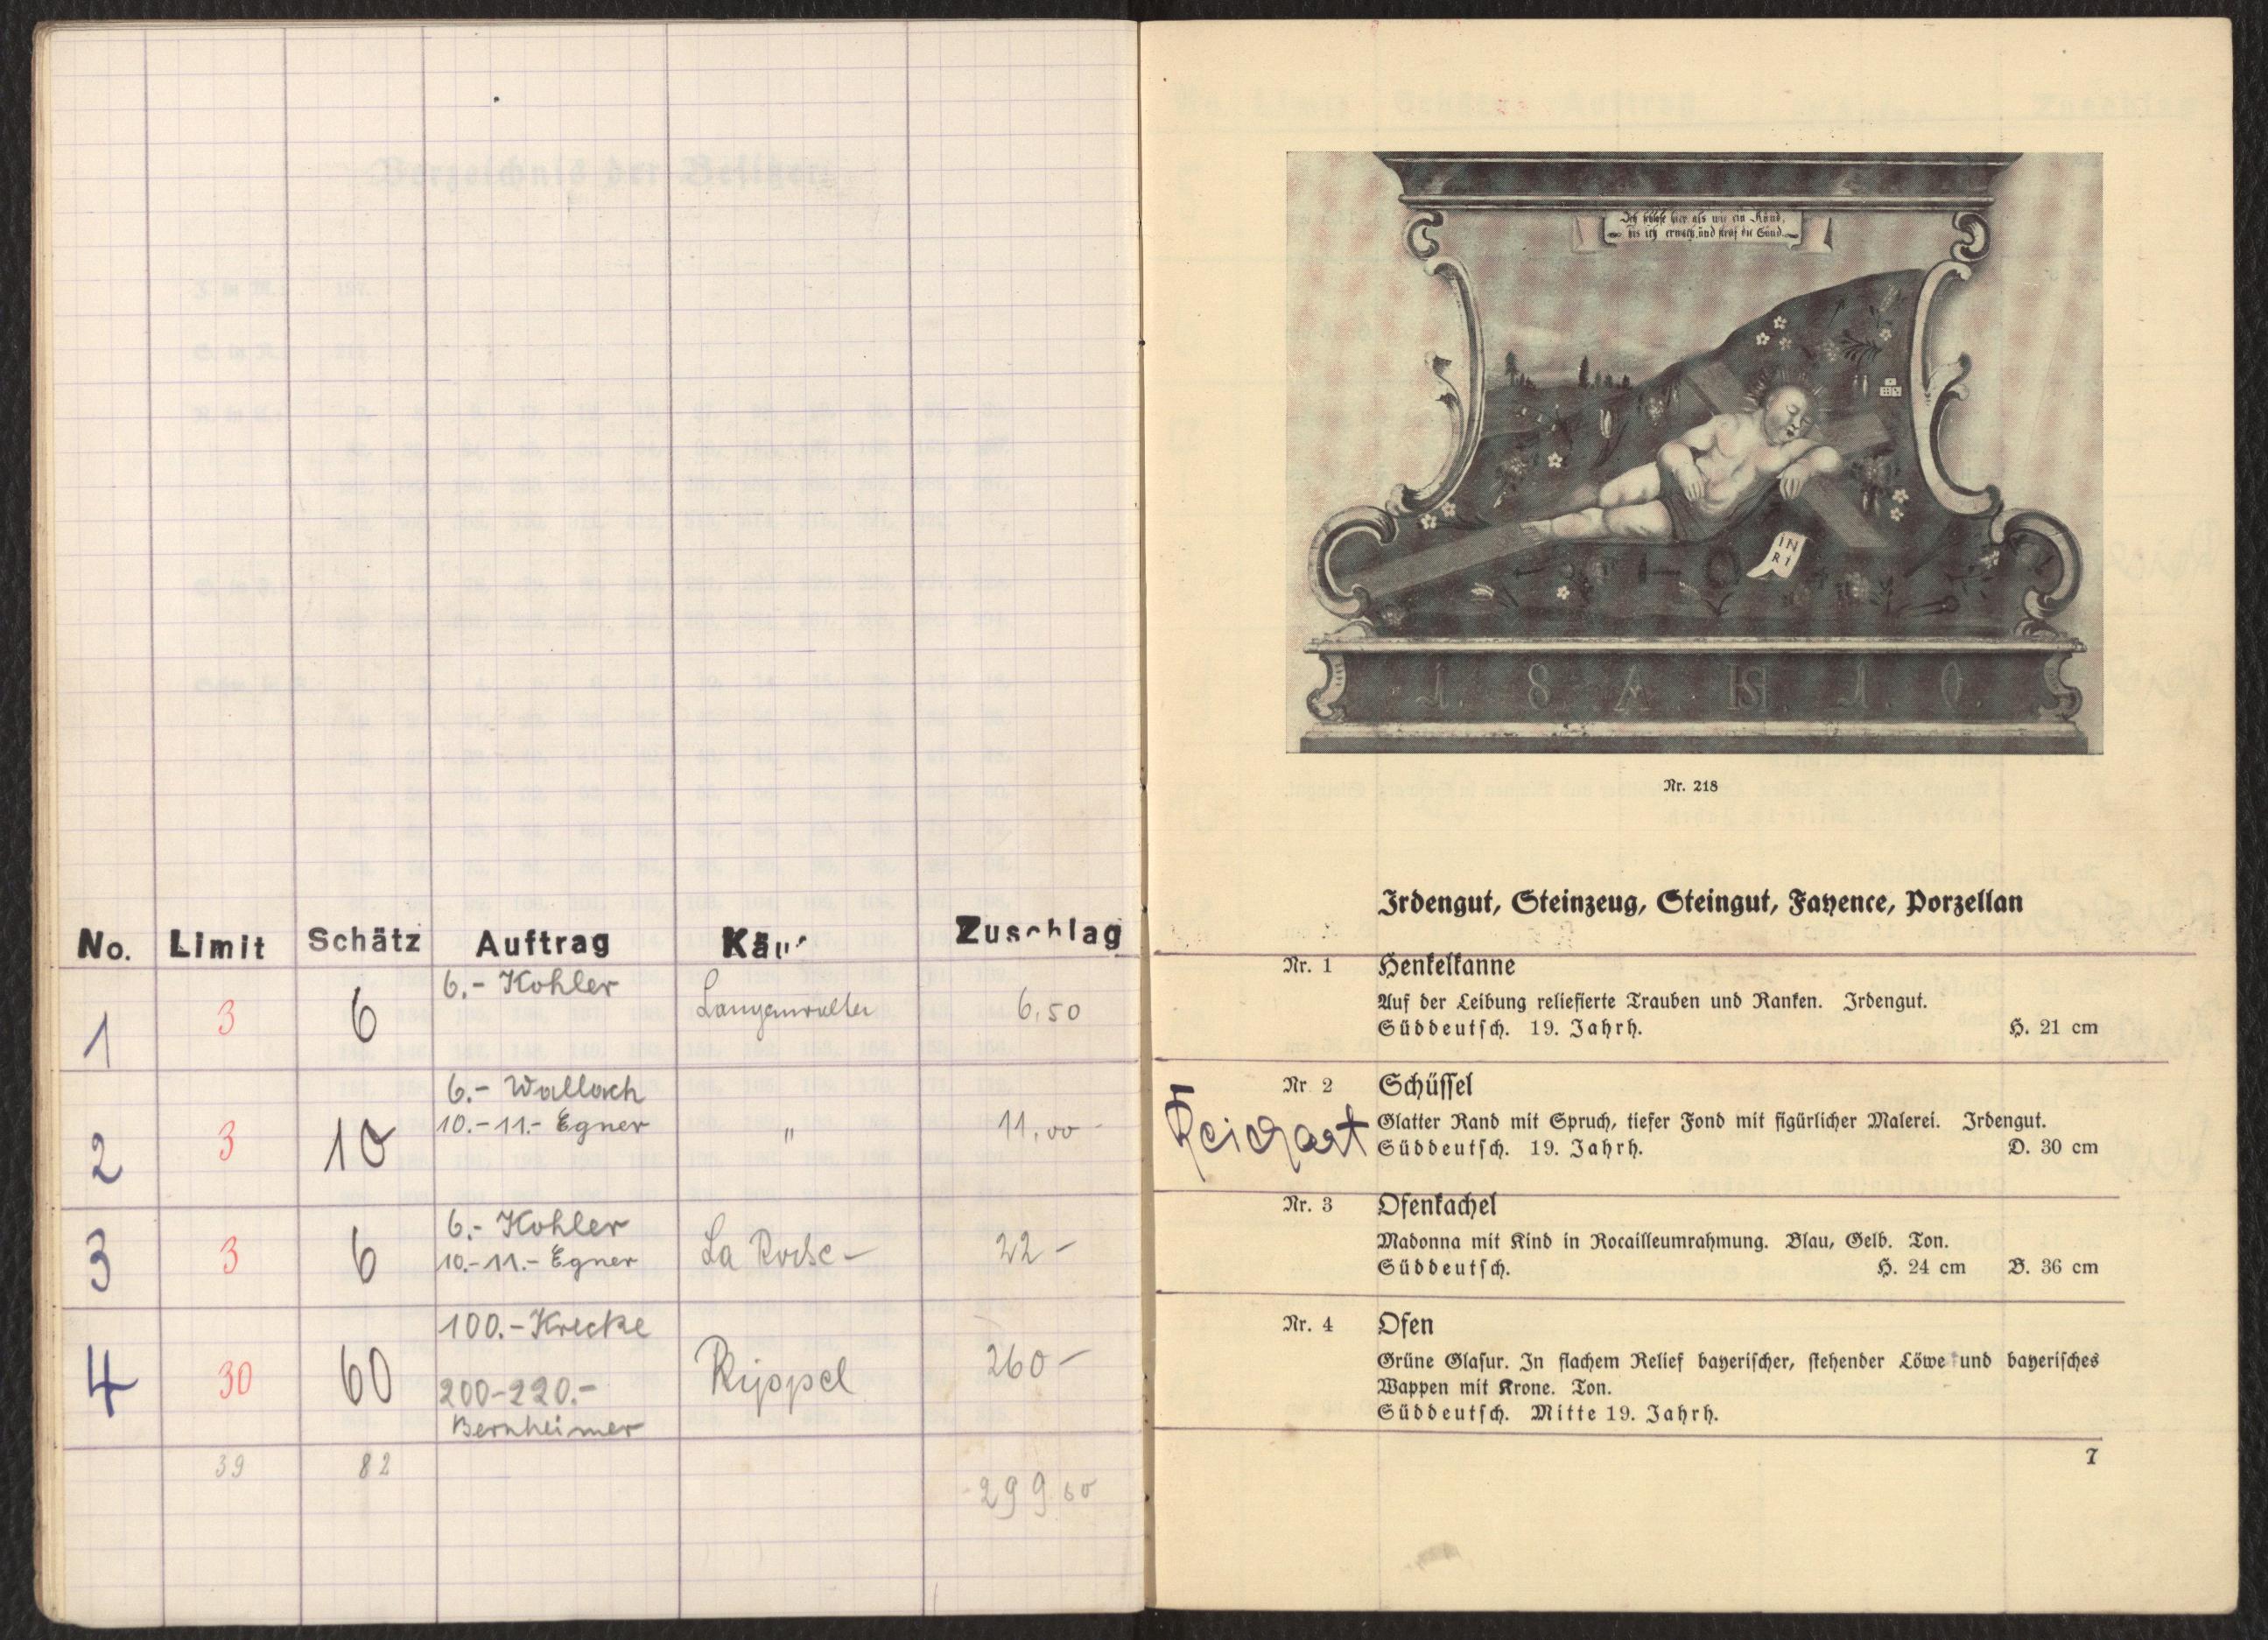 No. Limit Schätz Auftrag Käuf Zuschlag
6.- Kohler
1 3 6 Langenwalter 6,50
6.- Wallach
2 3 10 10.-11.- Egner " 11,00
6.- Kohler
3 3 6 10.-11.- Egner La Roche - 22 -
100.- Krecke
4 30 60 200-220.- Rippel 260 -
Bernheimer
39 82
299 50
Ich schlafe hier als wie ein Kind,
bis ich erwach und straf die Sünd.
IN
RI
1. 8 A HS. 1. 0.
Nr. 218
Irdengut, Steinzeug, Steingut, Fayence, Porzellan
Nr. 1 Henkelkanne
Auf der Leibung reliefierte Trauben und Ranken. Irdengut.
Süddeutsch. 19. Jahrh. H. 21 cm
Nr. 2 Schüssel
Reichart
Glatter Rand mit Spruch, tiefer Fond mit figürlicher Malerei. Irdengut.
Süddeutsch. 19. Jahrh. D. 30 cm
Nr. 3 Ofenkachel
Madonna mit Kind in Rocailleumrahmung. Blau, Gelb. Ton.
Süddeutsch. H. 24 cm B. 36 cm
Nr. 4 Ofen
Grüne Glasur. In flachem Relief bayerischer, stehender Löwe und bayerisches
Wappen mit Krone. Ton.
Süddeutsch. Mitte 19. Jahrh.
7